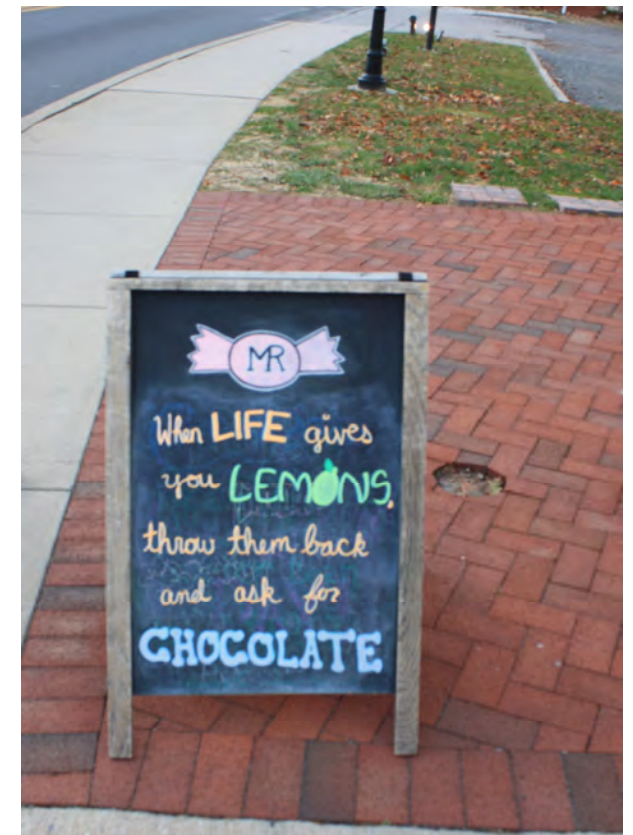 MR
When LIFE gives
you LEMONS,
throw them back
and ask for
CHOCOLATE